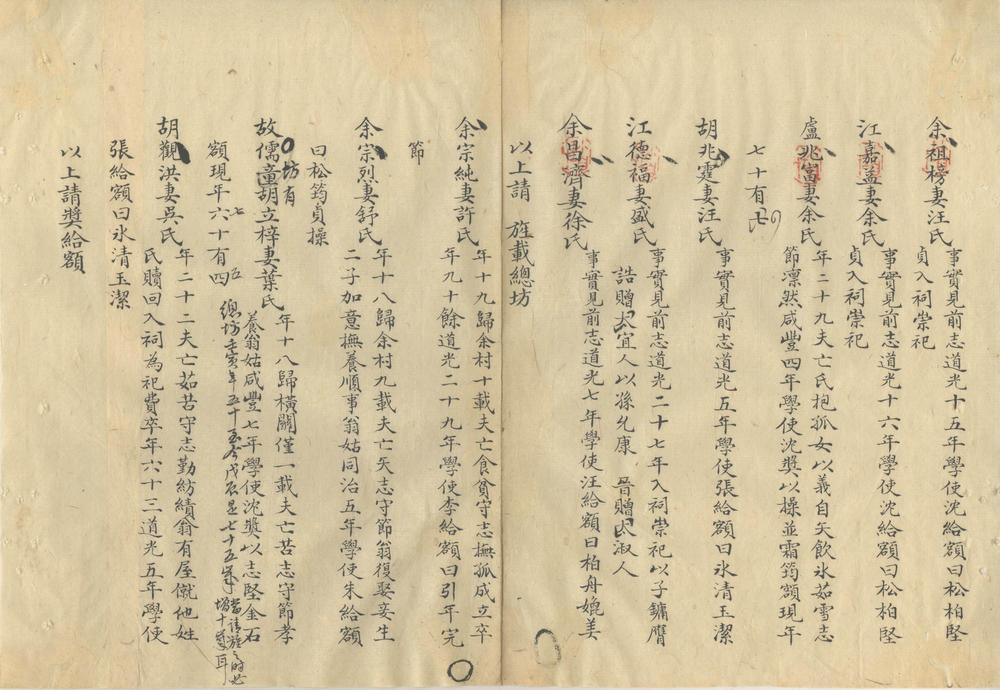 余祖榜妻汪氏事實見前志道光十五年學使沈給額曰松柏堅
貞入祠崇祀
江嘉益妻余氏事實見前志道光十六年學使沈給額曰松柏堅
貞入祠崇祀
盧兆當妻余氏年二十九夫亡氏抱孤女以義自矢飲氷茹雪志
節凜然咸豐四年學使沈獎以操並霜筠額現年
七十有
胡兆霆妻汪氏事實見前志道光五年學使張給額曰氷清玉潔
江德福妻盛氏事實見前志道光二十七年入祠崇祀以子鏞膺
誥贈太宜人以孫允康 晉贈太淑人
余昌濟妻徐氏事實見前志道光七年學使汪給額曰柏舟媲美
以上請 旌載總坊
余宗純妻許氏年十九歸余村十載夫亡食貧守志撫孤成立卒
年九十餘道光二十九年學使李給額曰引年完
節
余宗烈妻舒氏年十八歸余村九載夫亡矢志守節翁復娶妾生
二子加意撫養順事翁姑同治五年學使朱給額
曰松筠貞操
坊有
故儒童胡立梓妻葉氏年十八歸橫關僅一載夫亡苦志守節孝
養翁姑咸豐七年學使沈獎以志堅金石
額現年六十有四
七 五
總坊壬寅年五十五今戊辰是七十五歲
當請旌之時必
胡觀洪妻吳氏年二十二夫亡茹苦守志勤紡績翁有屋僦他姓
氏贖回入祠為祀費卒年六十三道光五年學使
張給額曰氷清玉潔
以上請獎給額